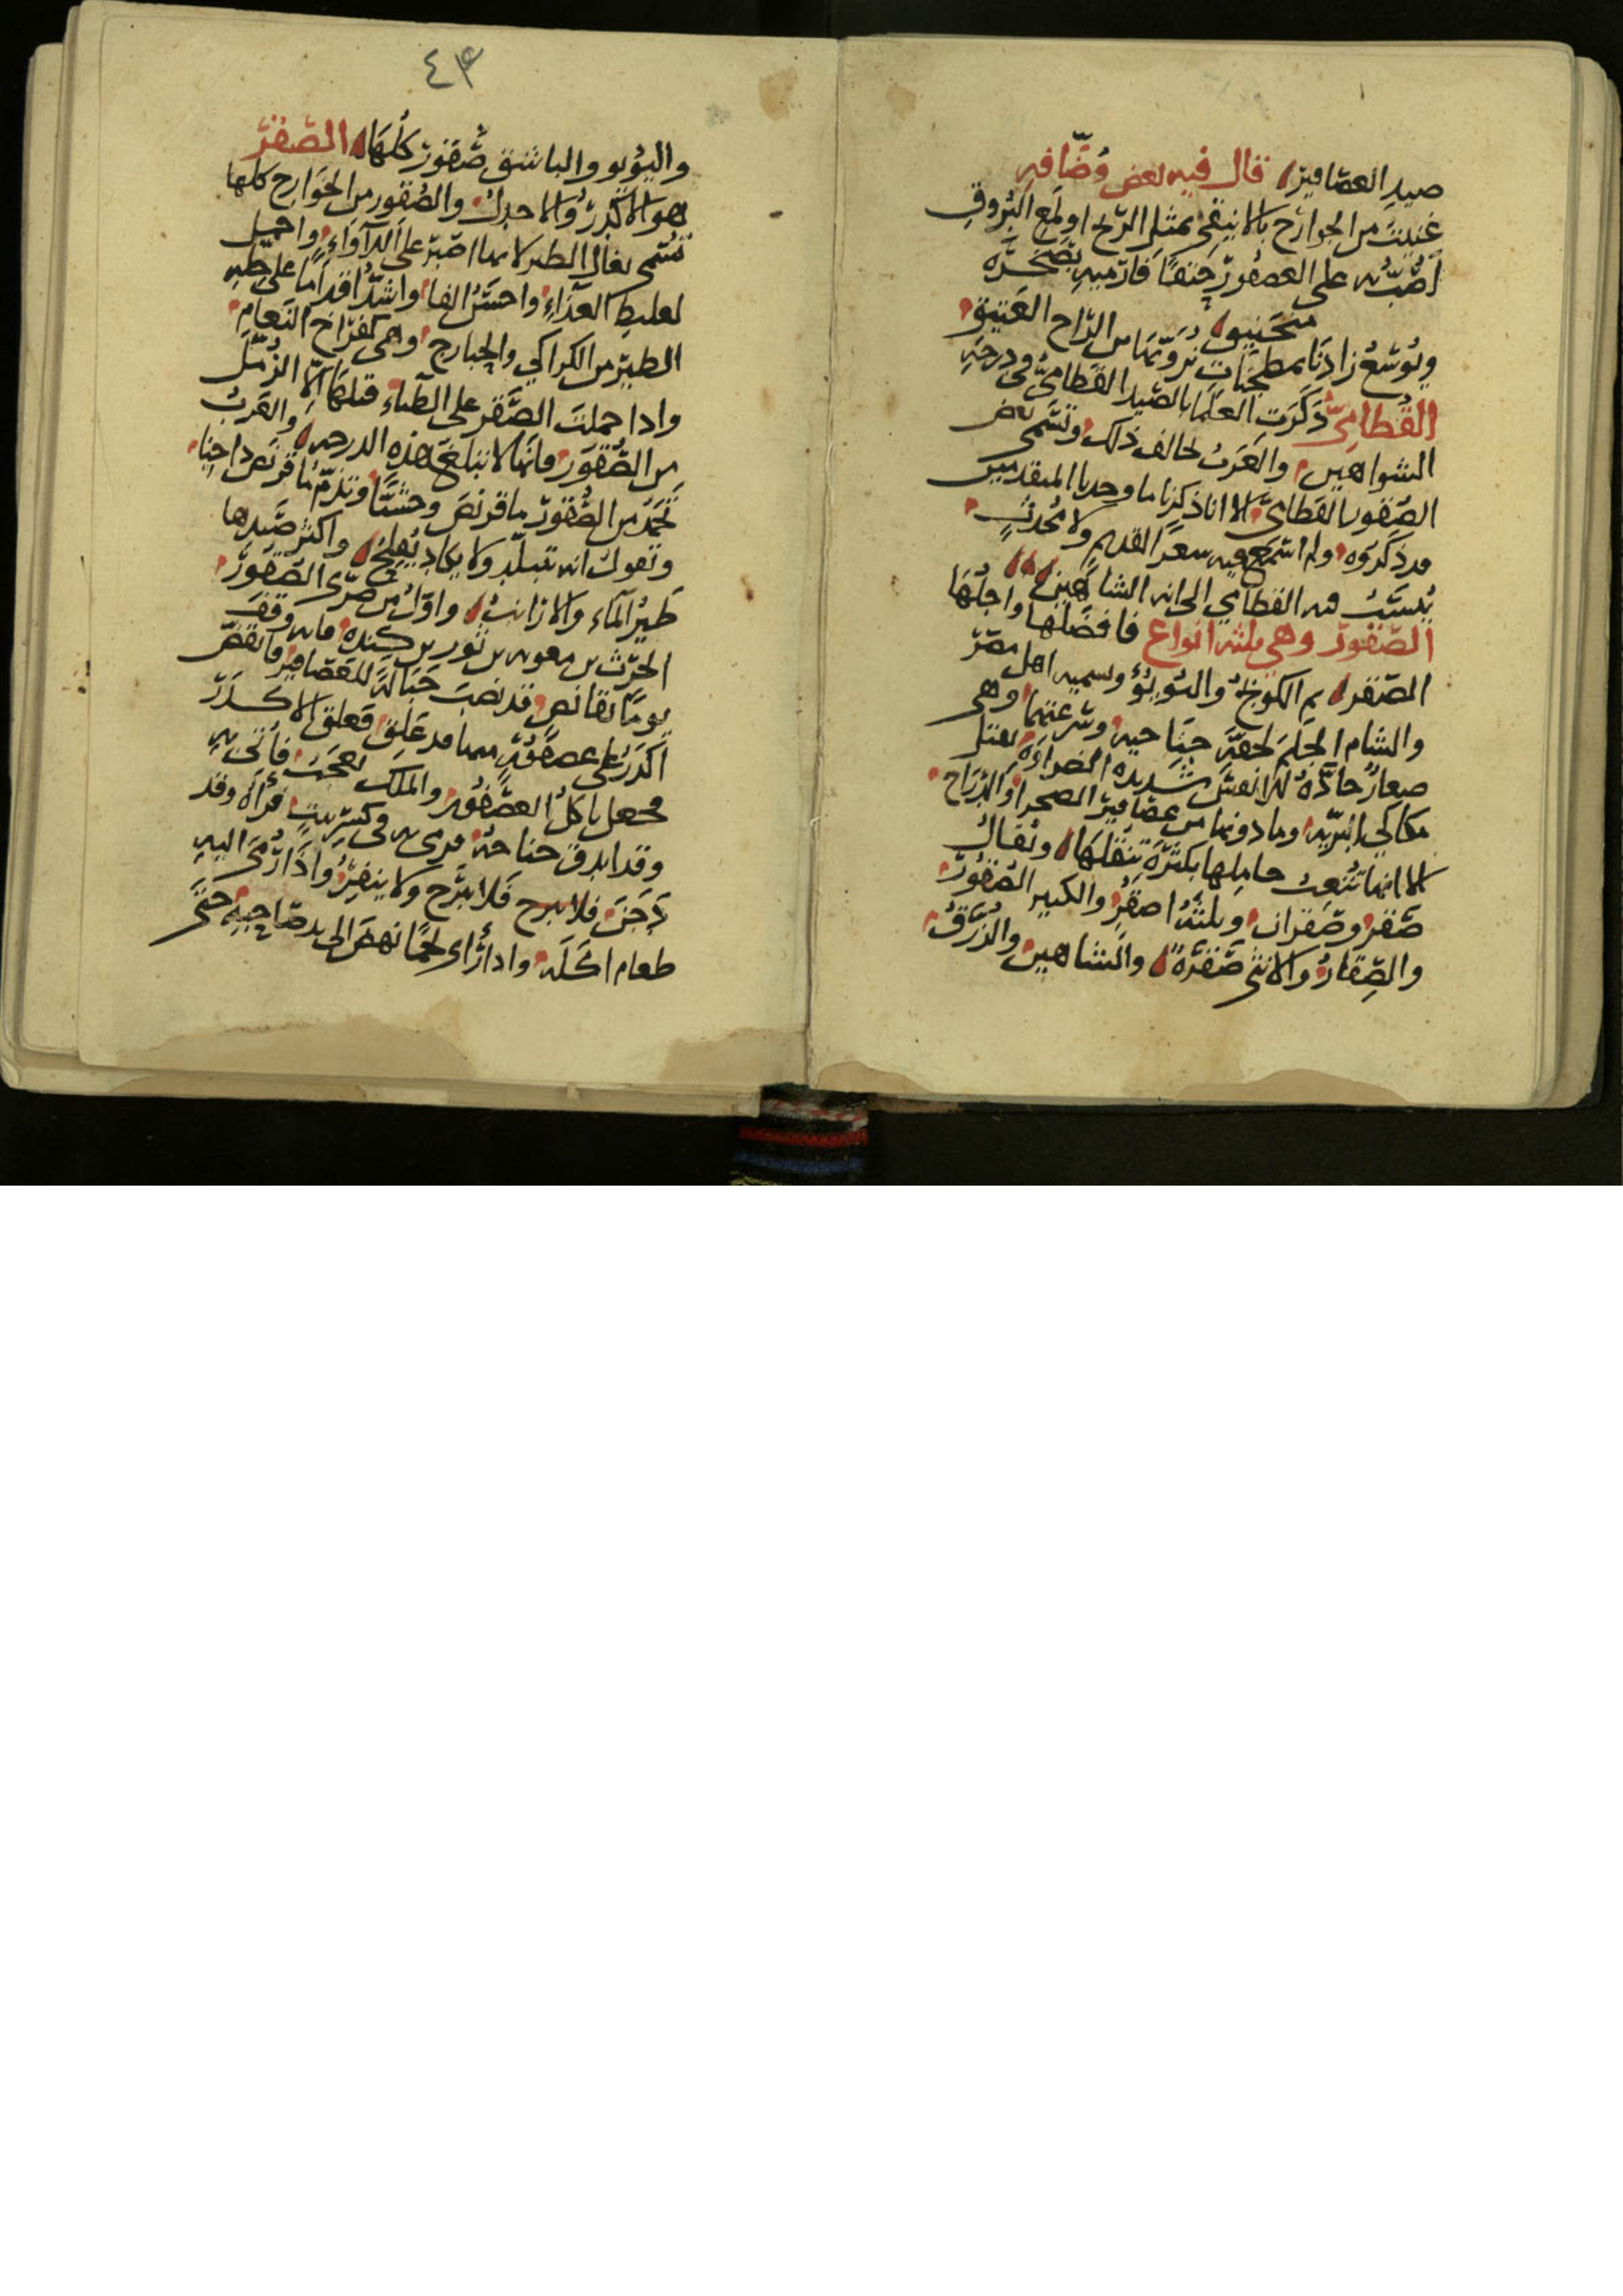 صيد العصافير قال فيه بعض وُصّافه
غنيت من الجوارح بالانيقي بمثل الريح او لمع البُروق
اصُبّه على العصفور حتفًا فارميه بصخرة
منجنيق
ويُوسّع زادنا بمطجنات نروّيها من الراح العتيق
القُطاميّ ذكرت العلما بالصيد القطاميّ في درجه
الشواهين والعرب تخالف ذلك وتسمى بعض
الصقور القطاميّ الا انا ذكرنا ما وجدنا المتقدمين
قد ذكروه ولم اسمع فيه شعر القديم ولا مُحدثٍ
يُنسب فيه القطامي الى انه الشاهين
الصقور وهي ثلثه انواع فافضلها واجلها
الصقر ثم الكونج واليُوْيُؤ ويسميه اهل مصر
والشام الجلم لخفة جناحيه وسرعتهما وهي
صغار حادّة الانفس شديده الضراوة تقتل
مكاكي البريه وما دونها من عصافير الصحرا والدرّاج
الا انها تُتعب حاملها بكثرة تنقلها ويقال
صقر وصقران وثلثة اصقُر والكبير الصقور
والصِقار والانثى صقرة والشاهين والزرق
٤٣
واليُؤيو والباشق صُقور كلها الصقر
هو الاكدر والاجدل والصُقور من الجوارح كلها
تُسمى بغال الطير لانها اصبر على اللاواء واحمل
لغليظ الغذاء واحسن الفا واشد اقداما على جله
الطير من الكراكي والحبارج وهي كفراخ النعام
واذا حملت الصقر على الظباء قتلها الا الزُمّل
من الصُقور فانها لا تبلغ هذه الدرجه والعرب
تحمد من الصُقور ما قرنص وحشيّا وتذمّ ما قرنص داجنا
وتقول انه تبلّد ولا يكاد يُفلح واكثر صيدها
طير الماء والارانب واوّل من ضرّى الصقور
الحرث بن معويه بن ثور بن كنده فانه وقف
يوما بقانص قد نصب حبالة للعصافير فانقضّ
اكدر على عصفور منها قد علق فعلق الاكدر
فجعل ياكل العصفور والملك يعجب فاُتى به
وقد اندق جناحه فرمى به في كسر بيت فرآه وقد
دجن فلا يبرح فلا يبرح ولا ينفر واذا رُمى اليه
طعام اكله واذا رأى لحما نهض الى يد صاحبه حتى